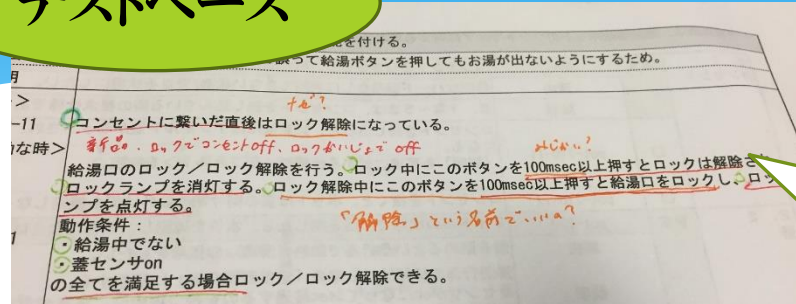 テストベース
を付ける。
って給湯ボタンを押してもお湯が出ないようにするため。
ナゼ?
-11 コンセントに繋いだ直後はロック解除になっている。
な時>
新品、ロックでコンセントOFF、ロックかいじょで OFF
みじかい?
給湯口のロック/ロック解除を行う。ロック中にこのボタンを100msec以上押すとロックは解除さ
ロックランプを消灯する。ロック解除中にこのボタンを100msec以上押すと給湯口をロックし、ロッ
ンプを点灯する。
「解除」という名前でいいの?
動作条件:
・給湯中でない
・蓋センサon
の全てを満足する場合ロック/ロック解除できる。